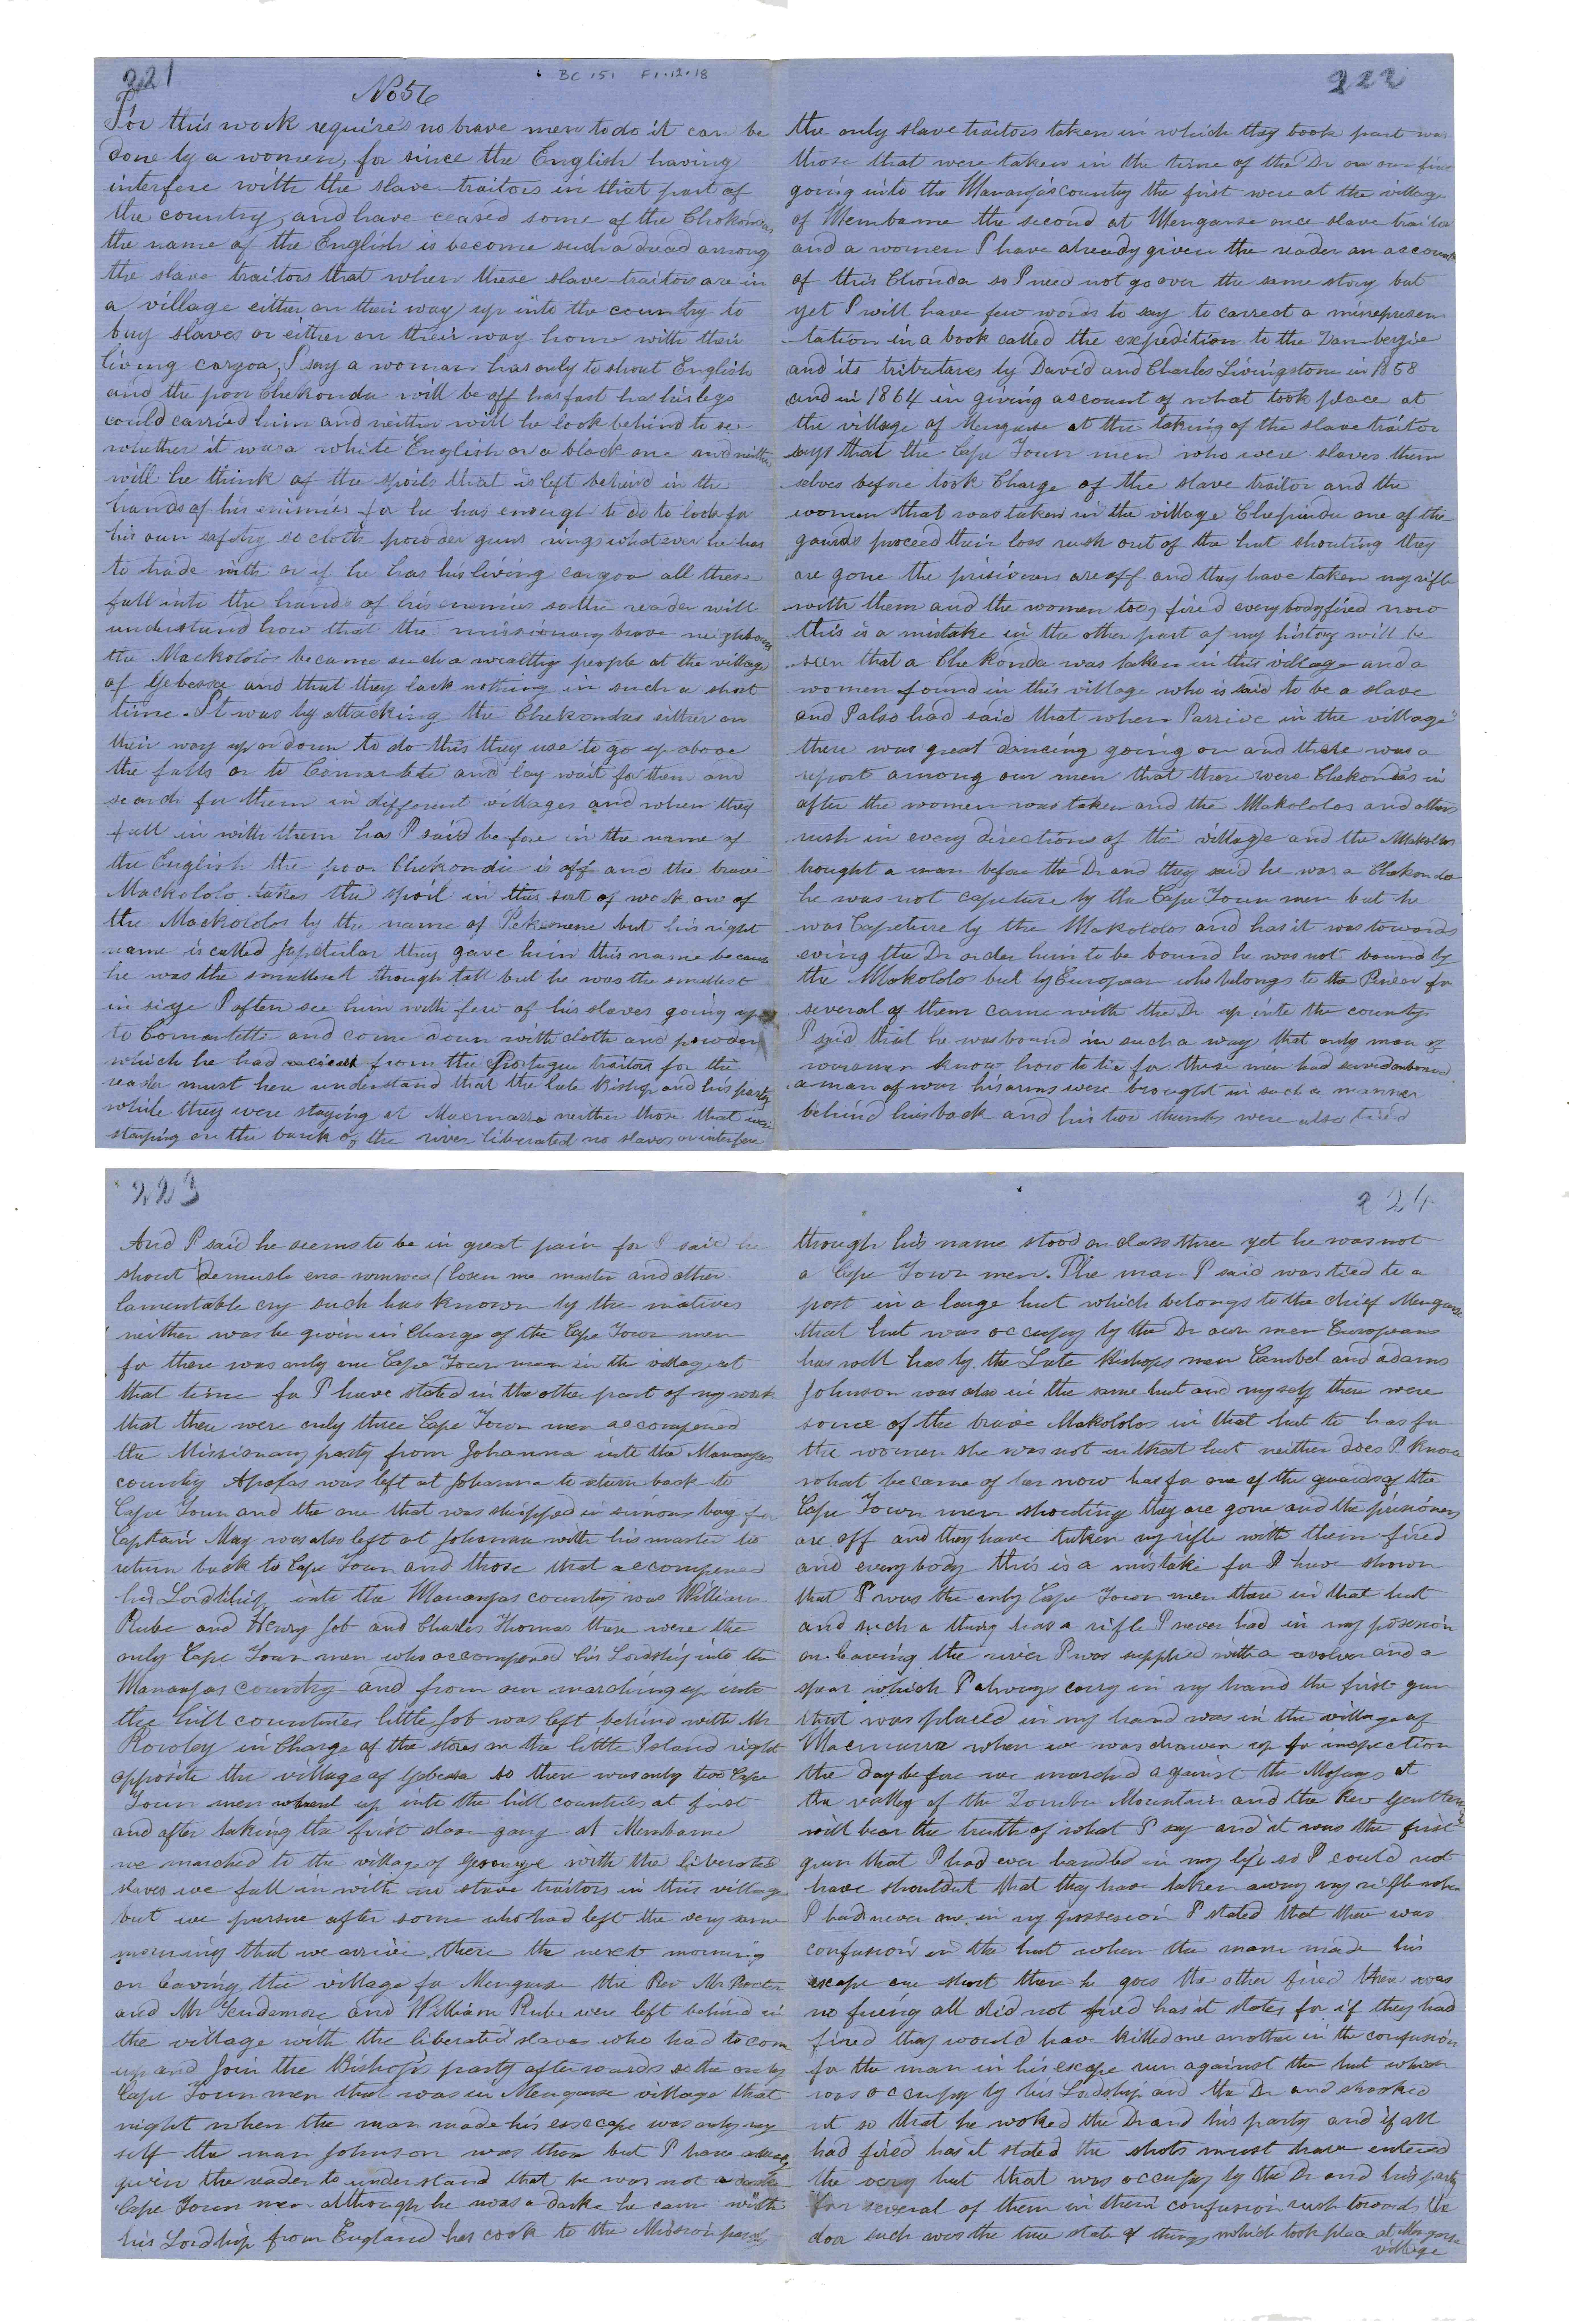 221
No 56
BC 151 F1.12.18
For this work requires no brave men to do it can be
done by a women, for since the English having
interfere withe the slave traitors in that part of
the country, and have ceased some of the Chekondas
the name of the English is become such a dread among
the slave traitors that when these slave traitors are in
a village either on their way up into the country to
buy slaves or either on their way home with their
living cargoa, I say a woman has only to shout English
and the poor Chekonda will be off has fast has his legs
could carried him and neither will he look behind to see
whether it was a white English or a black one and neither
will he think of the spoils that is left behind in the
hands of his enimies for he has enough to do to look for
his own safety so cloth powder guns rings whatever he has
to trade with or if he has his living cargoa all these
fall into the hands of his enemies so the reader will
understand how that the missionary brave neighbours
the Mackololos became such a wealthy people at the village
of Gebessa and that they lack nothing in such a short
time. It was by attacking the Chekondas either on
their way up or down to do this they use to go up above
the falls or to and lay wait for them and
search for them in different villages and when they
fall in with them has I said before in the name of
the English the poor Chekonda is off and the brave
Mackololo takes the spoil in this sort of work one of
the Mackololos by the name of but his right
name is called they gave him this name because
he was the smallest though tall but he was the smallest
in size I often see him with few of his slaves going up
to and come down with cloth and powder
which he had from the Portugue traitor for the
reader must here understand that the late Bishop and his party
while they were staying at neither those that were
staying on the bank of the river liberated no slaves or interfere
222
the only slave traitors taken in which they took part was
those that were taken in the time of the Dr on our first
going into the Mananjas country the first were at the village
of Membame the second at Menganse once slave traitor
and a women I have already given the reader an account
of this Chonda so I need not go over the same story but
yet I will have few words to say to correct a misrepresen
tation in a book called the expedition to the Zambergie
and its tributares by David and Charles Livingstone in 1858
and in 1864 in giving account of what took place at
the village of Mengause at the taking of the slave traitor
says that the Cape Town men who were slaves them
selves before took Charge of the slave traitor and the
women that was taken in the village Chepindu one of the
gaurds proceed their loss rush out of the hut shouting they
are gone the prisioners are off and they have taken my rifle
with them and the women too, fire'd everybody fired now
this is a mistake in the other part of my history will be
seen that a Chekonda was taken in this village and a
women found in this village who is said to be a slave
and I also had said that when I arrive in the village
there was great dancing going on and there was a
report among our men that there were Chekondas in
after the women was taken and the Makololos and others
rush in every directions of the village and the Makololos
brought a man before the Dr and they said he was a Chekonda
he was not capeture by the Cape Town men but he
was Capeture by the Makololos and has it was towards
eving the Dr order him to be bound he was not bound by
the Mokololo but by European who belongs to the Pineer for
several of them came with the Dr up into the country
I said that he was bound in such a way that only man of
warsman know how to tie for these men had served onboard
a man of war his arms were brought in such a manner
behind his back and his two thumbs were also tied
223
And I said he seems to be in great pain for I said he
shout (losen me master and other
lamentable cry such has known by the natives
neither was he given in Charge of the Cape Town men
for there was only one Cape Town men in the village at
that time for I have stated in the other part of my work
that there were only three Cape Town men accompened
the Missionary party from Johanna into the Mananjas
country Apolas was left at Johanna to return back to
Cape Town and the one that was shipped in simons bay for
Captain May was also left at Johanna with his master to
return back to Cape Town and those that accompened
his Lordship into the Mananjas country was William
Rube and Henry Job and Charles Thomas these were the
only Cape Town men who accompened his Lordship into the
Mananjas country and from our marching up into
the hill countries little Job was left behind with Mr
Rowley in Charge of the stores on the little Island right
opposite the village of Gebessa so there was only two Cape
Town men up into the hill countries at first
and after taking the first slave gang at Membame
we marched to the village of with the liberated
slaves we fall in with no slave traitors in this village
but we pursue after some who had left the very same
mourning that we arrive there the next morning
on leaving the village for Mengause the Rev Mr Procter
and Mr Scudamore and William Rube were left behind in
the village with the liberated slave who had to come
up and join the Bishop's party afterwards so the only
Cape Town men that was in Mengause village that
night when the man made his esscape was only my
self the man Johnson was there but I have already
given the reader to understand that he was not a
Cape Town men although he was a darke he came with
his Lordship from England has cook to the Mission party
224
though his name stood on class three yet he was not
a Cape Town men. The man I said was tied to a
post in a large hut which belongs to the chief Mengause
that hut was occupy by the Dr own men Europeans
has well has by the Late Bishops men Cambel and adams
Johnson was also in the same hut and myself there were
some of the brave Makololos in that hut to has for
the women she was not in that hut neither does I know
what became of her now has for one of the guards of the
Cape Town men shouting they are gone and the prisioners
are off and they have taken my rifle with them fired
and everybody this is a mistake for I have shown
that I was the only Cape Town men there in that hut
and such a thing has a rifle I never had in my posesion
on leaving the river I was supplied with a revolver and a
spear which I always carry in my hand the first gun
that was placed in my hand was in the village of
when we was drawen up for inspection
the day before we marched against the at
the valley of the Zomba Mountain and the Rev Gentlemen
will bear the truth of what I say and it was the first
gun that I had ever handled in my life so I could not
have shoutdut that they have taken away my rifle when
I had never one in my possesion I stated that there was
confusion in the hut when the man made his
escape one shout there he goes the other fired there was
no firing all did not fired has it states for if they had
fired they would have killed one another in the confusion
for the man in his escape run against the hut which
was occupy by his Lordship and the Dr and shooked
it so that he woked the Dr and his party and if all
had fired has it stated the shots must have entered
the very hut that was occupy by the Dr and his party
for several of them in them confusion rush towards the
door such was the true state of things which took place at Mengause
village